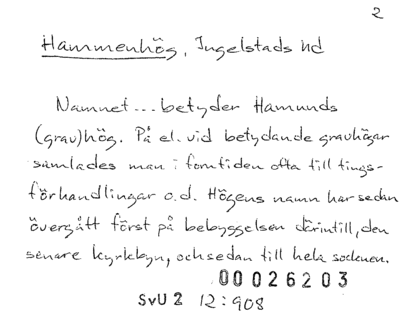 2
Hammenhög, Ingelstads hd
Namnet... betyder Hamunds
(grav)hög. På el. vid betydande gravhögar
samlades man i forntiden ofta till tings-
förhandlingar o.d. Högens namn har sedan
övergått först på bebyggelsen därintill, den
senare kyrkbyn, och sedan till hela socknen.
00026203
SvU 2 12:908